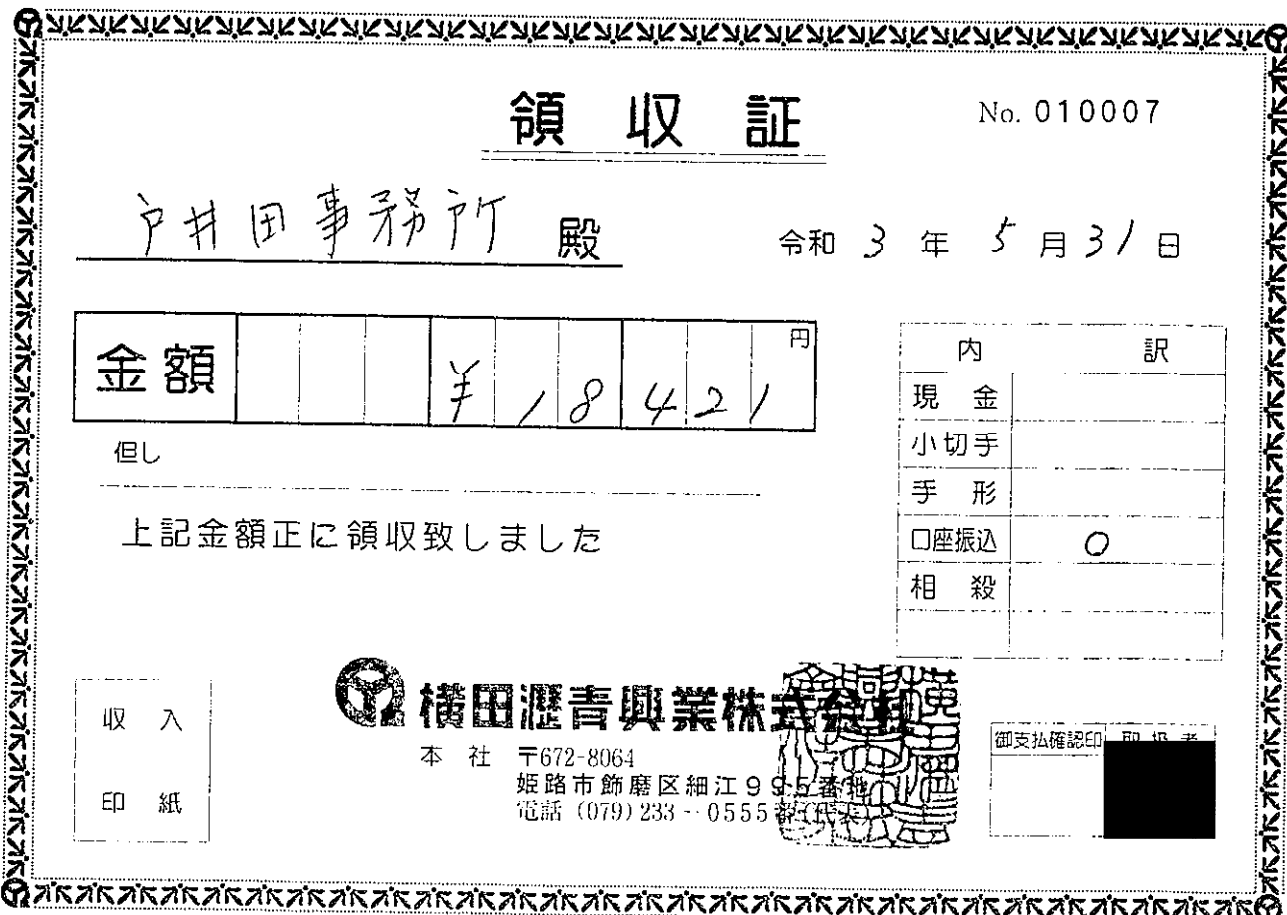 領収証
No. 010007
戸井田事務所 殿
令和 3 年 5 月 31 日
金額 ¥18421 円
但し
上記金額正に領収致しました
内訳
現金
小切手
手形
口座振込 ○
相殺
収入
印紙
横田瀝青興業株式会社
本社 〒672-8064
姫路市飾磨区細江995番地
電話 (079) 233-0555番(代表)
御支払確認印 取扱者